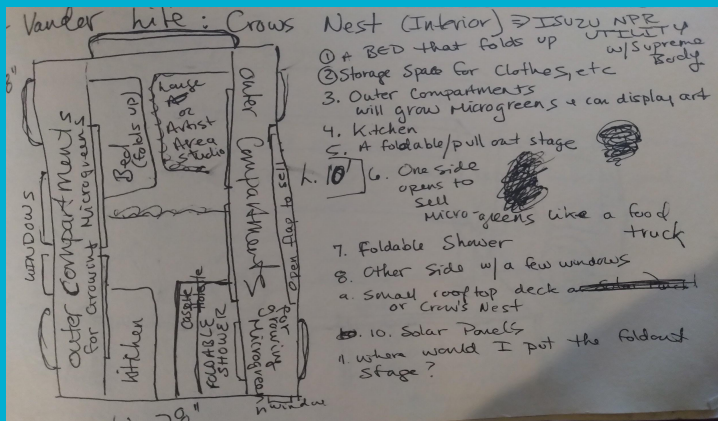 Vander Lite: Crows Nest (Interior) ⇒ ISUZU NPR
UTILITY
w/Supreme
Body
① A BED that folds up
② Storage Space for Clothes, etc
3. Outer Compartments
will grow Microgreens & can display art
4. Kitchen
5. A foldable/pull out stage
6. One side
opens to
sell
Micro-greens like a food
truck
7. Foldable Shower
8. Other side w/ a few windows
9. Small rooftop deck
or Crow's Nest
10. Solar Panels
1. Where would I put the foldout
stage?
8"
WINDOWS
Outer Compartments
for Growing Microgreens
Bed
(folds up)
or
Artist
Area
Studio
Kitchen
FOLDABLE
SHOWER
Outer Compartments
for
growing
Microgreens
open flap to sell
window
L. 10
78"